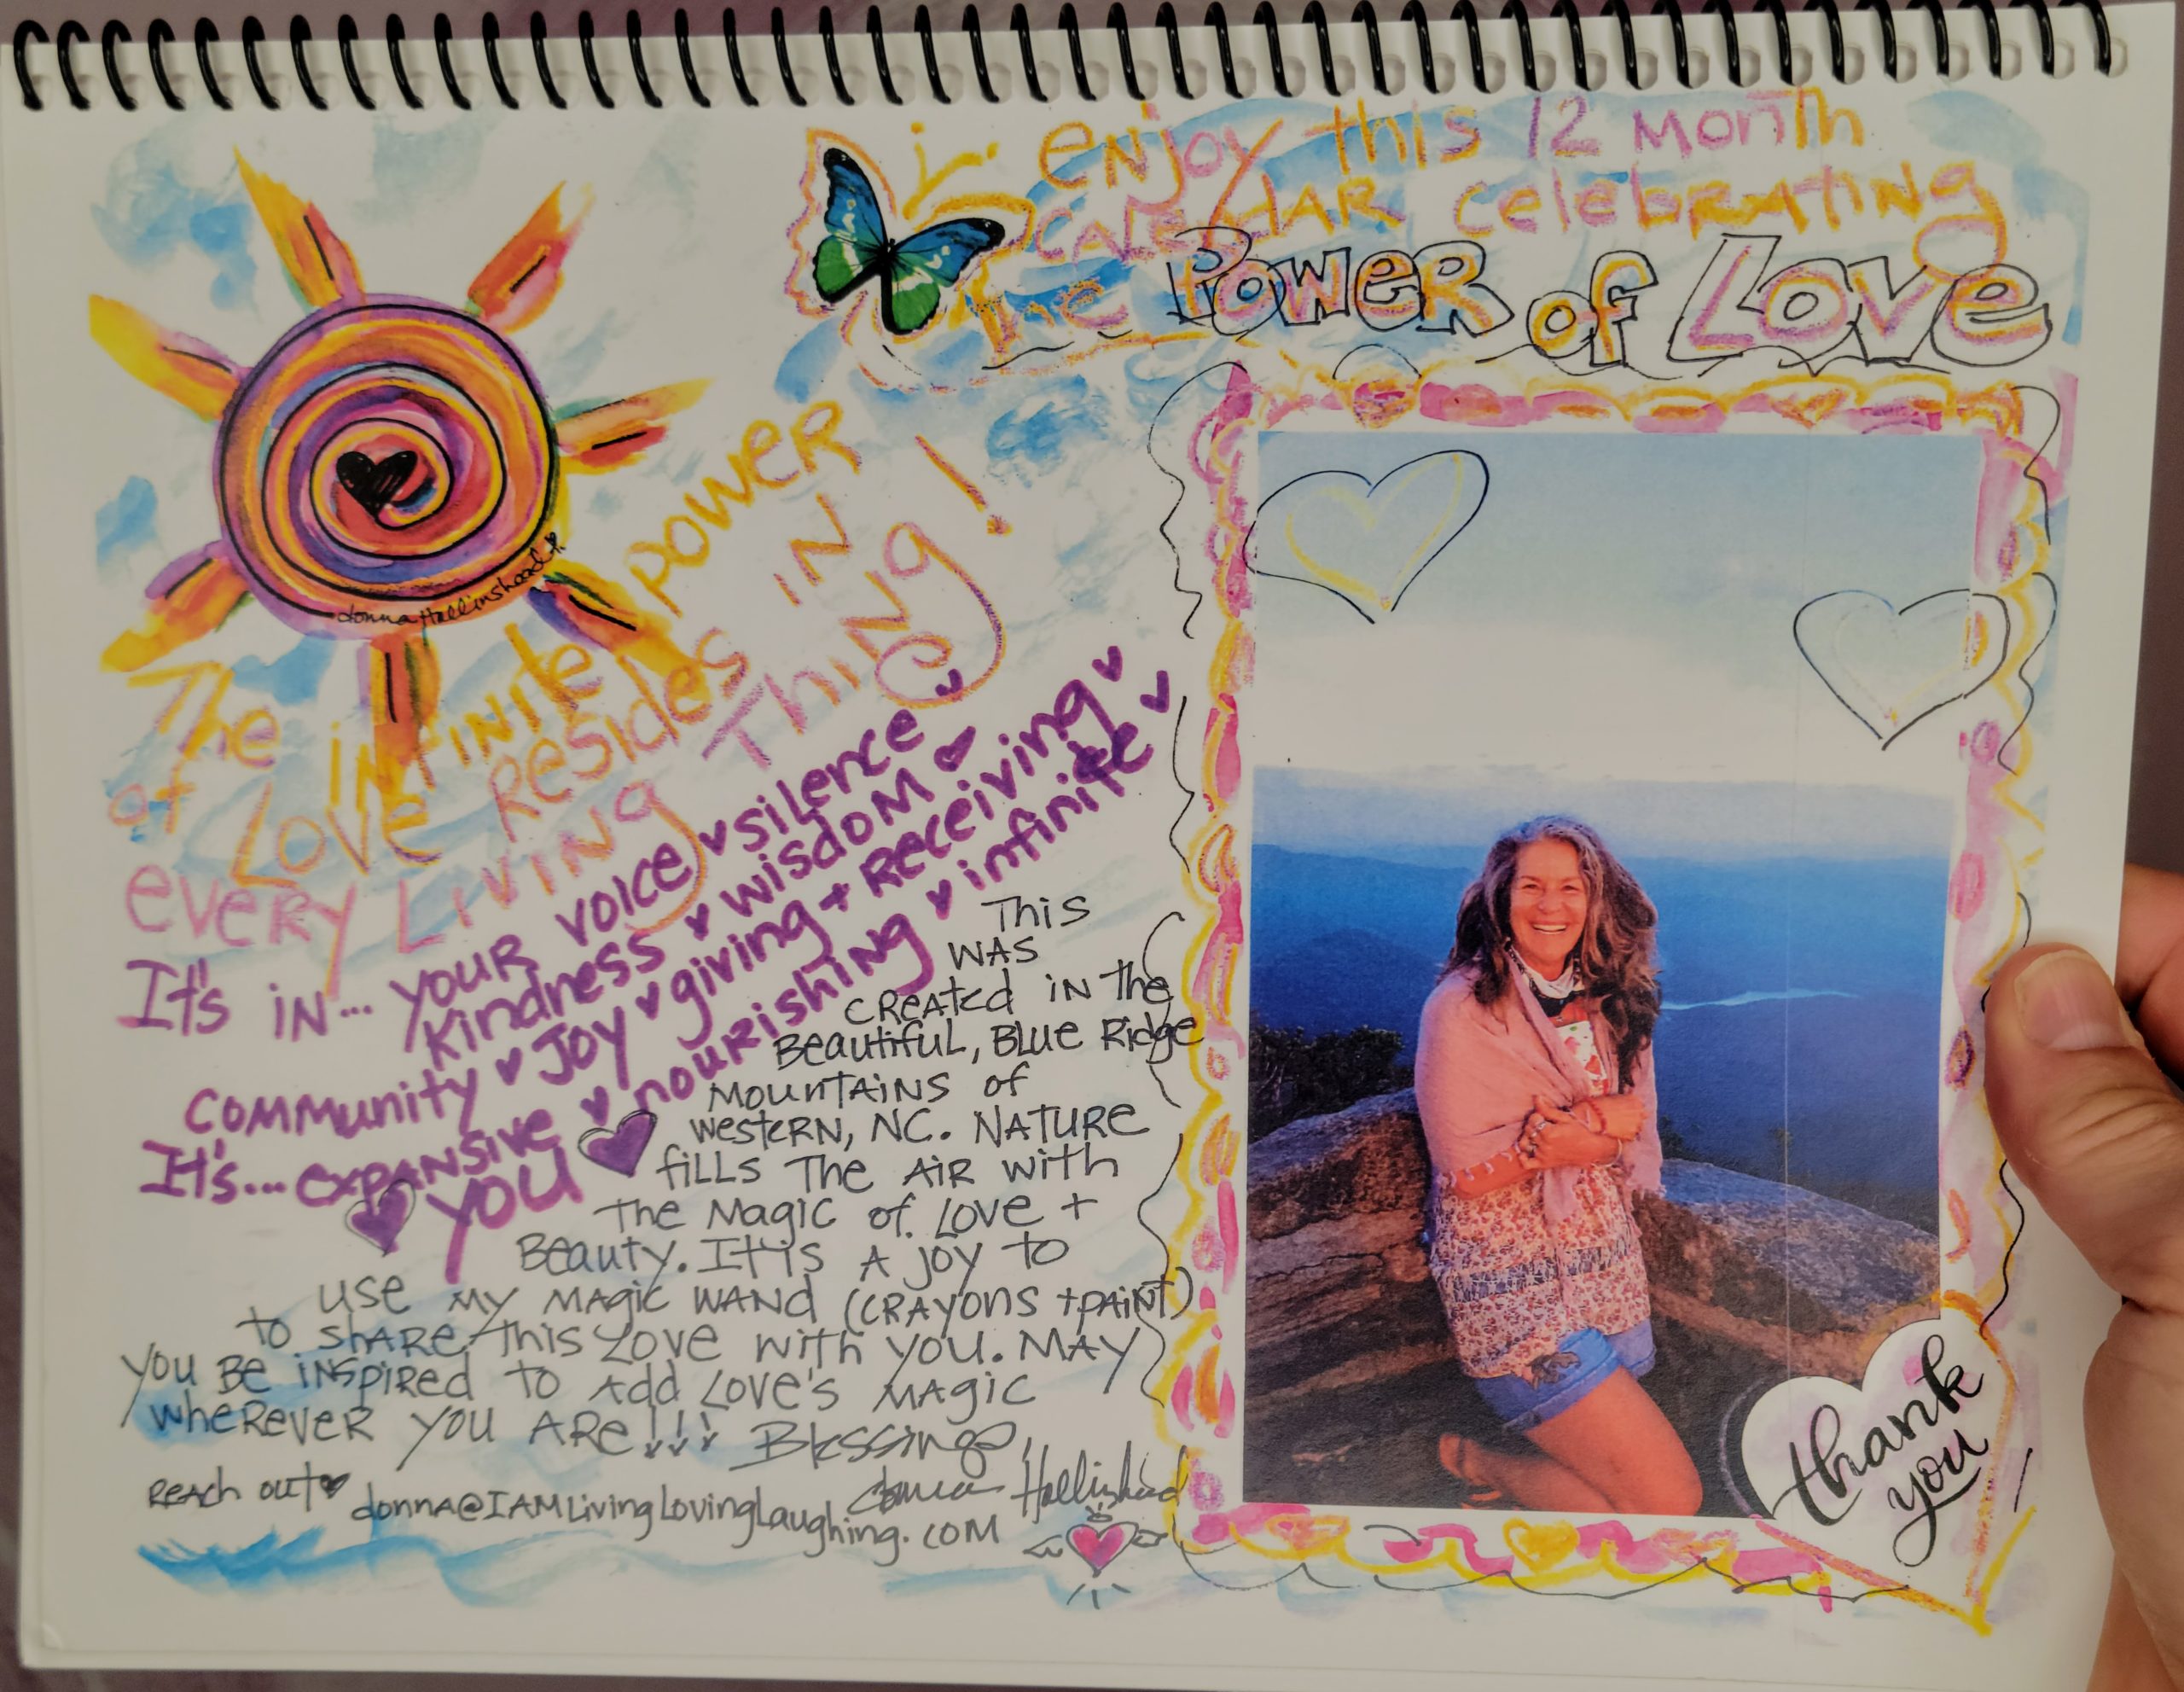 enjoy this 12 Month
CALENDAR celebrating
The POWER of LOVE
donna Hollinshead
The infinite POWER
of LOVE Resides IN
every LIVING THING!
It's IN... YOUR VOICE silence
Kindness wisdom
Community JOY giving + Receiving
It's... expansive nourishing infinite
YOU
This
WAS
CREATED IN the
Beautiful, Blue Ridge
MOUNTAINS of
WesteRN, NC. NATURE
fills The AiR with
The Magic of Love +
Beauty. It is A joy to
use my MAGic WAND (CRAYONS + PAINT)
to shARe this Love with you. MAY
you Be inspired to Add Love's MAGic
wheREVER YOU ARe!!! Blessings,
donna Hollinshead
Reach out donna@IAMLivingLovingLaughing.com
thank
you